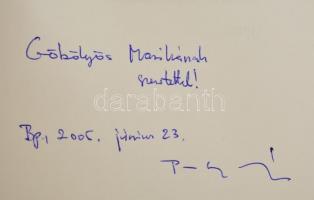 Göbölyös Marikának
szeretettel!
darabanth
Bp., 2005. június 23.